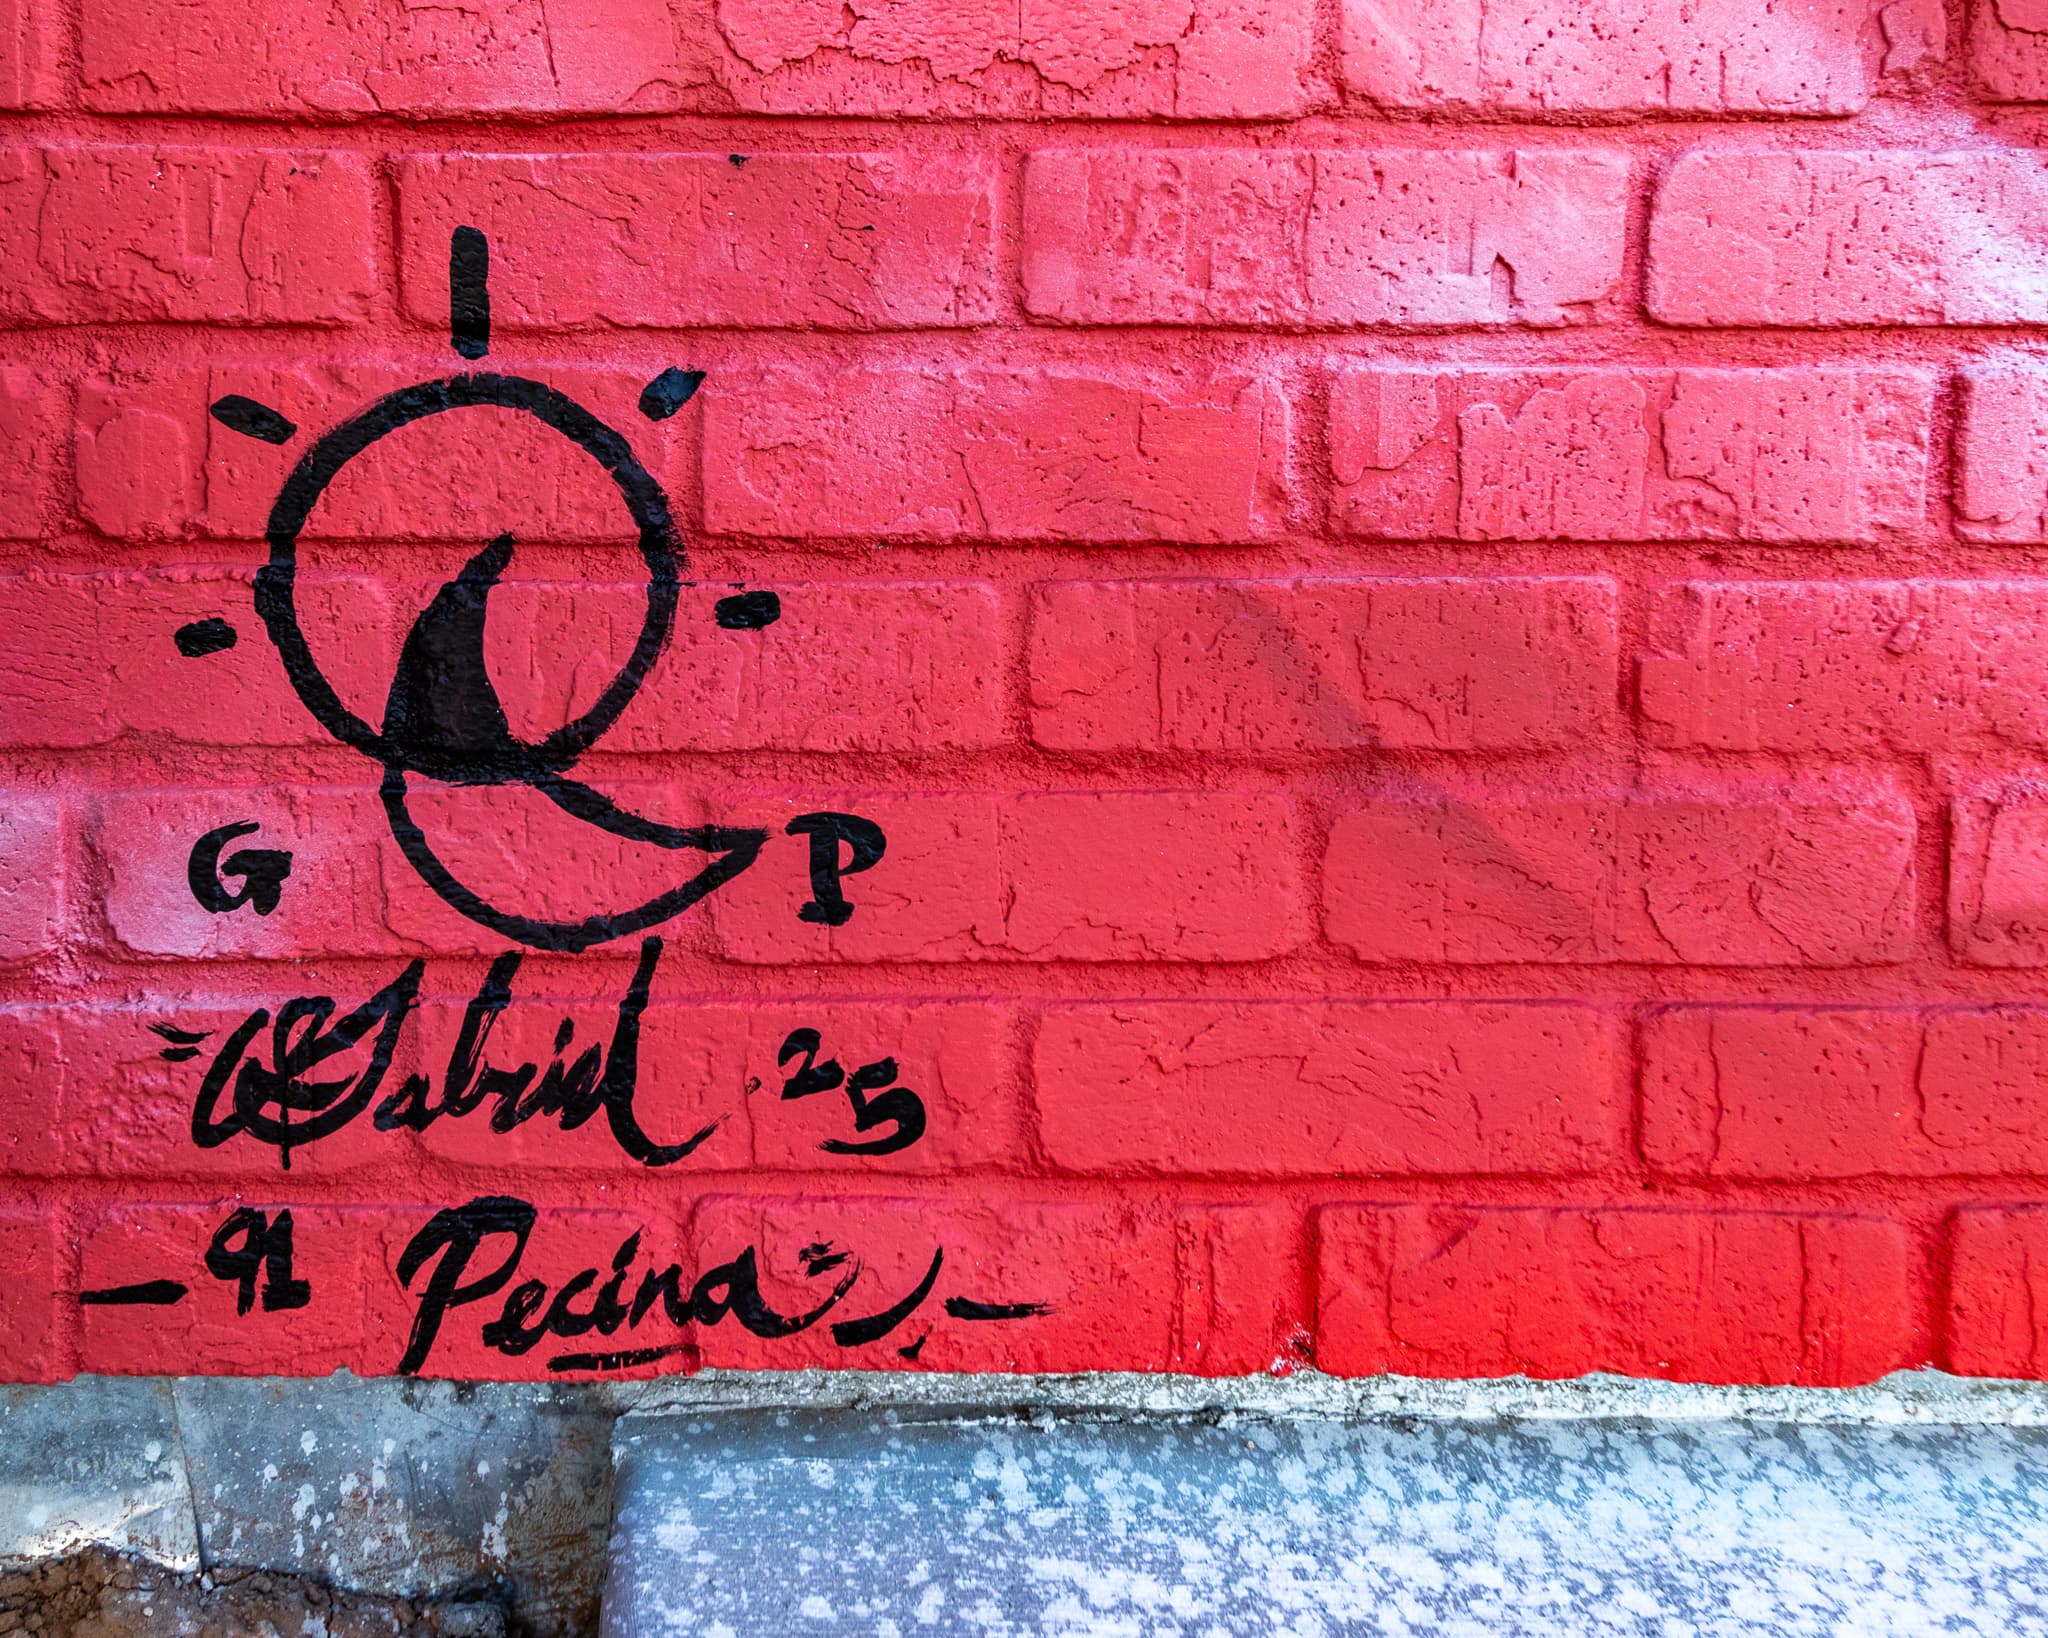 G P
"Gabriel 25
- 91 Pecina" -